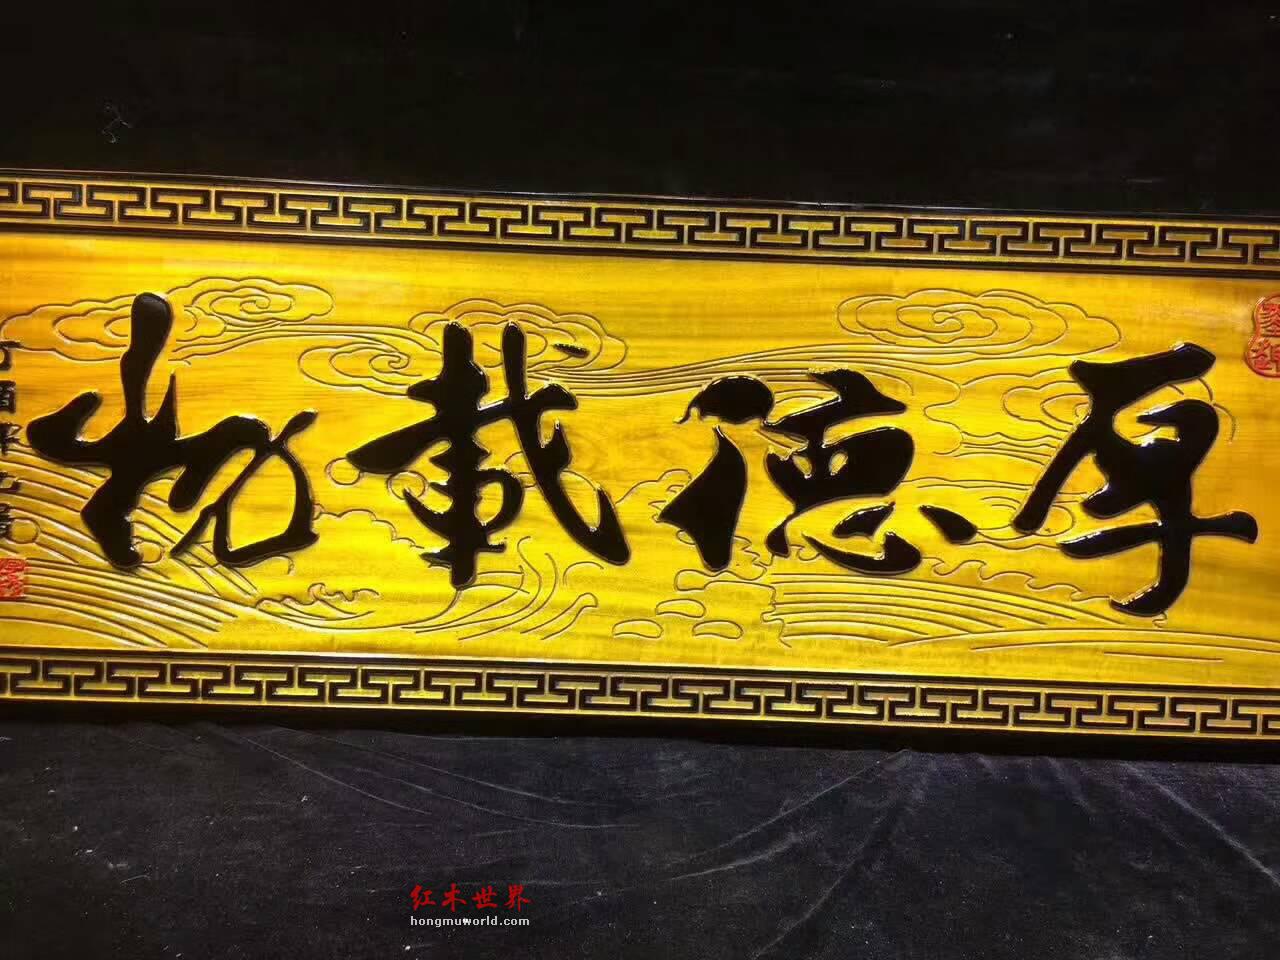 厚德載物
丁酉
红木世界
hongmuworld.com